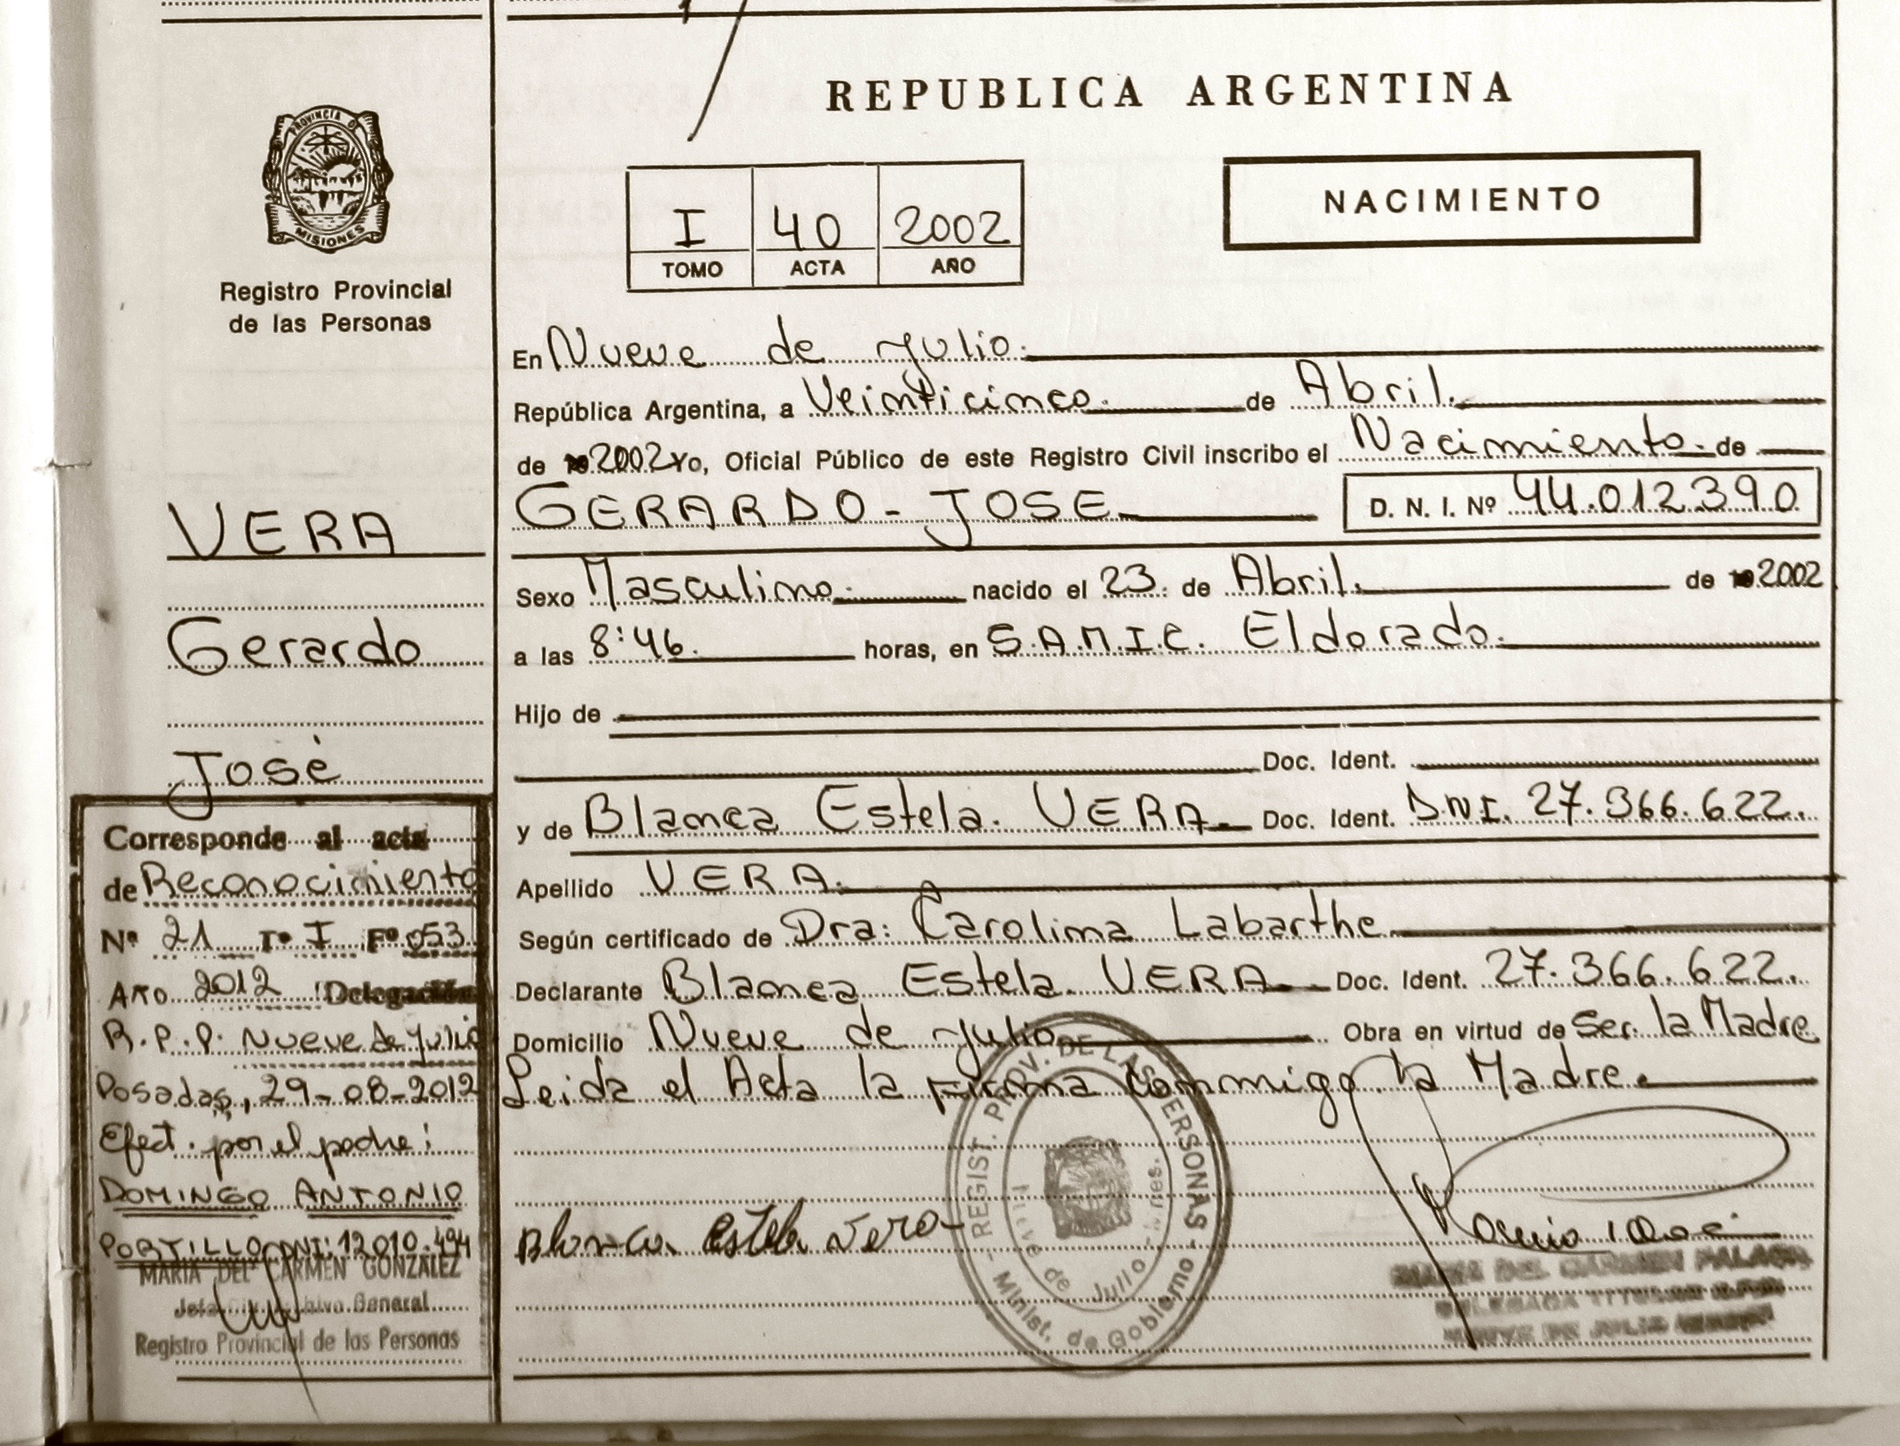 REPUBLICA ARGENTINA
PROVINCIA DE
MISIONES
Registro Provincial
de las Personas
I 40 2002
TOMO ACTA AÑO
NACIMIENTO
En Nueve de Julio.
República Argentina, a Veinticinco. de Abril.
de 2002 Yo, Oficial Público de este Registro Civil inscribo el Nacimiento. de
GERARDO - JOSE D. N. I. Nº 44.012.390
Sexo Masculino. nacido el 23. de Abril. de 2002
a las 8:46. horas, en S.A.M.I.C. Eldorado.
Hijo de
Doc. Ident.
y de Blanca Estela. VERA. Doc. Ident. D.N.I. 27.366.622.
Apellido VERA.
Según certificado de Dra: Carolina Labarthe.
Declarante Blanca Estela. VERA. Doc. Ident. 27.366.622.
Domicilio Nueve de Julio Obra en virtud de Ser. la Madre
Leida el Acta la Firma Conmigo la Madre.
Blanca Estela Vera
REGIST. PROV. DE LAS PERSONAS
Nueve de Julio - Mnes.
Minist. de Gobierno
MARIA DEL CARMEN
VERA
Gerardo
José
Corresponde al acta
de Reconocimiento
Nº 21 Tº I Fº 053
Año 2012 Delegación
R.P.P: Nueve de Julio
Posadas, 29-08-2012
Efect. por el padre:
DOMINGO ANTONIO
PORTILLO DNI: 12.010.494
MARIA DEL CARMEN GONZALEZ
Jefa Archivo General
Registro Provincial de las Personas